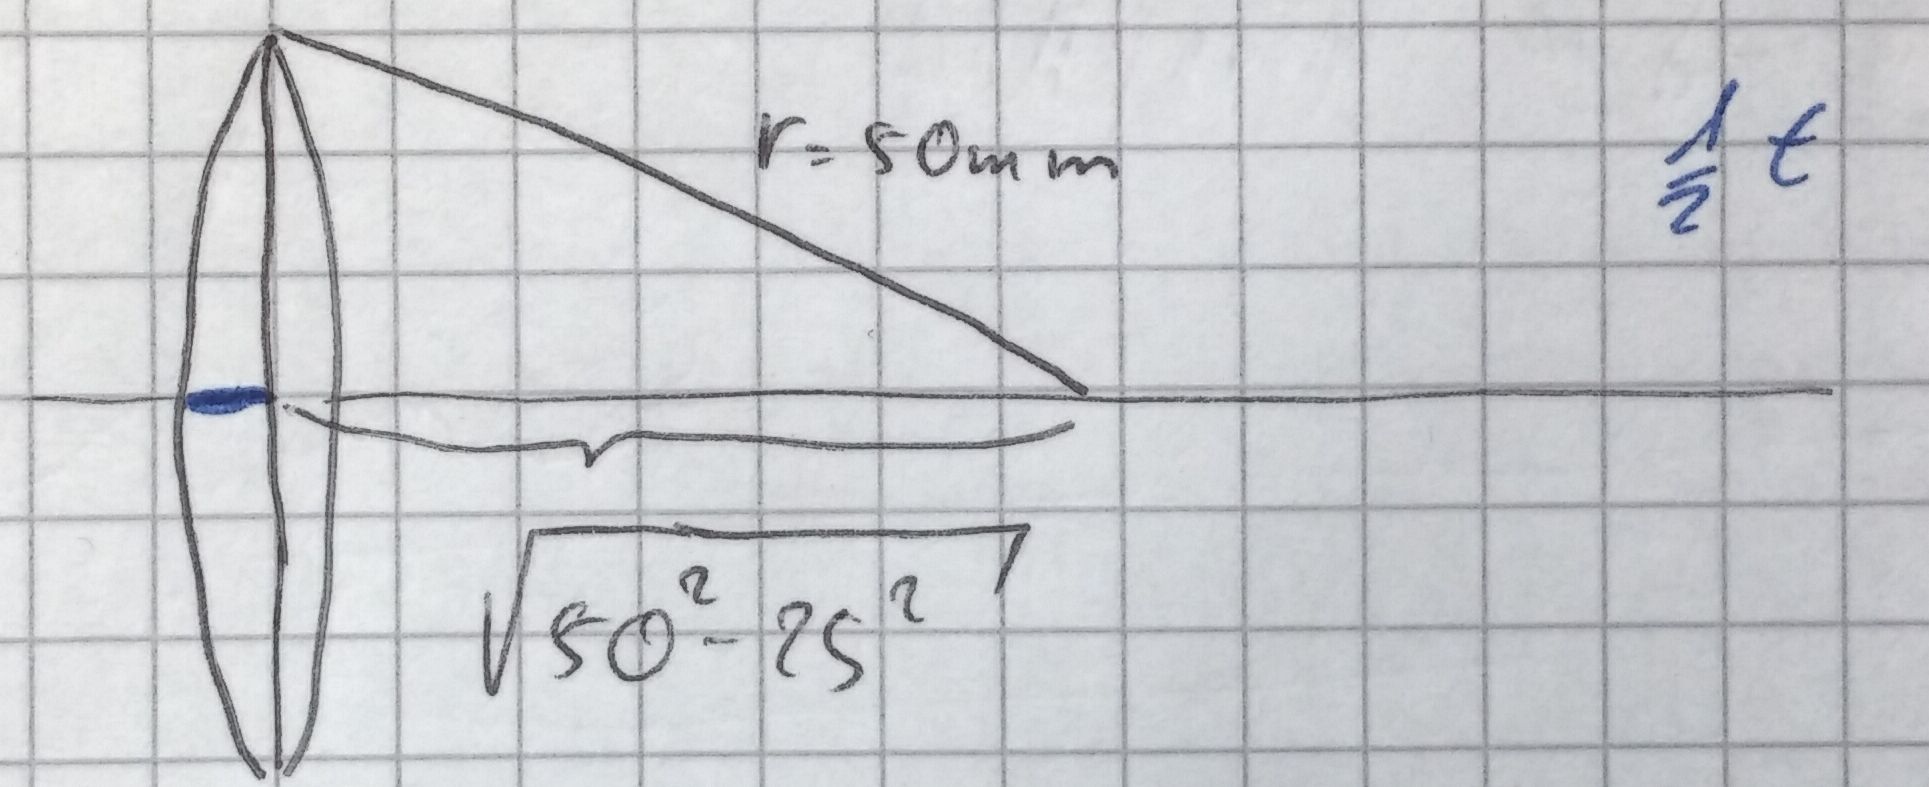 r = 50mm
1/2 t
√(50² - 25²)